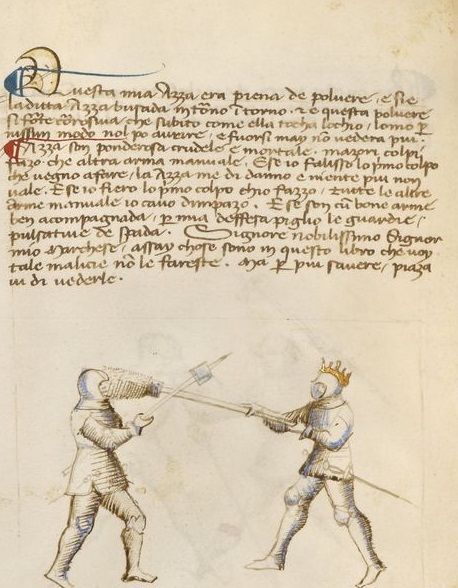 Questa mia Azza era piena de polvere, e si e
la ditta Azza busada intorno intorno. Et e questa polvere
si forte corrosiva che subito como ella tocha lochio, lomo per
nissun modo nol po avrire, e fuorsi may non vedera piu.
Azza son ponderosa crudele e mortale, mazori colpi
fazo che altra arma manuale. E se io falisso lo primo colpo
che vegno a fare, la Azza me di danno e niente piu non
vale. E se io fiero lo primo colpo chio fazzo, tutte le altre
arme manuale io cavo dimpazo. E se son cum bone arme
ben acompagnada, per mia deffesa piglio le guardie,
pulsative de spada. Signore nobilissimo Signor
mio Marchese, assay chose sono in questo libro che voy
tale malicie non le fareste. Ma per piu savere, piaza
vi di vederle.